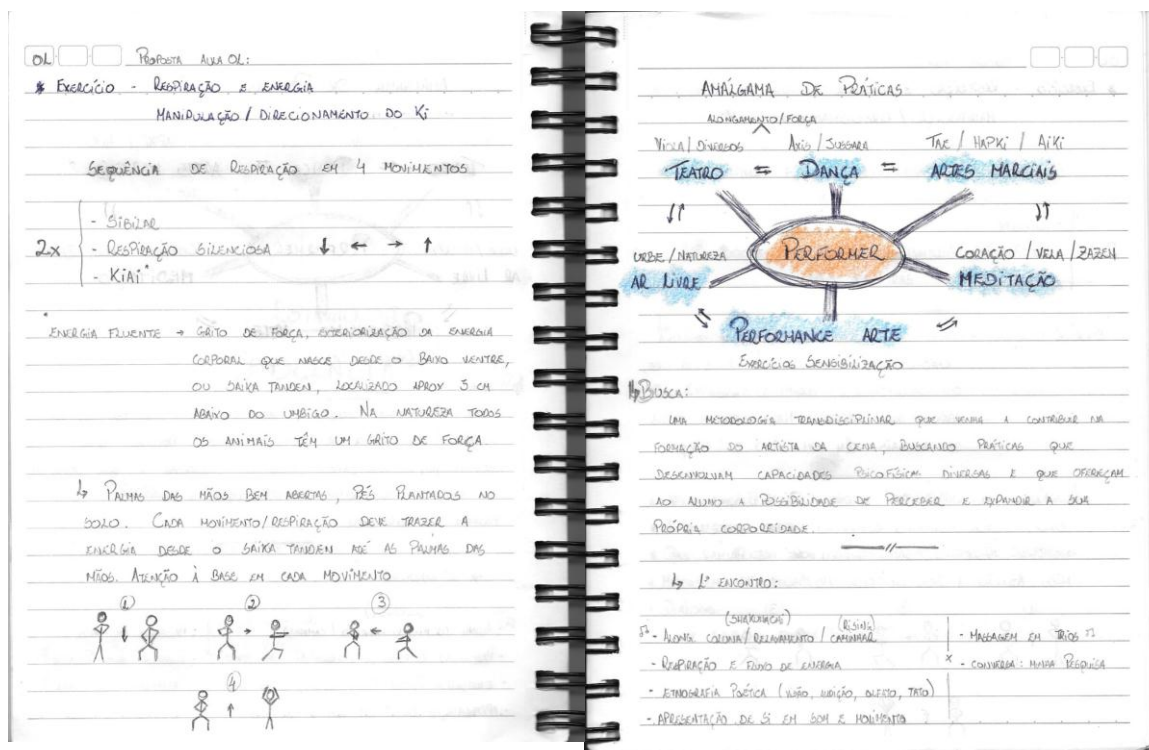 01 PROPOSTA AULA 01:
* EXERCÍCIO - RESPIRAÇÃO E ENERGIA
MANIPULAÇÃO / DIRECIONAMENTO DO Ki
SEQUÊNCIA DE RESPIRAÇÃO EM 4 MOVIMENTOS
- SIBILAR
2x - RESPIRAÇÃO SILENCIOSA ↓ ← → ↑
- KiAi*
* ENERGIA FLUENTE → GRITO DE FORÇA, EXTERIORIZAÇÃO DA ENERGIA
CORPORAL QUE NASCE DESDE O BAIXO VENTRE,
OU SAIKA TANDEN, LOCALIZADO APROX 3 CM
ABAIXO DO UMBIGO. NA NATUREZA TODOS
OS ANIMAIS TÊM UM GRITO DE FORÇA
↳ PALMAS DAS MÃOS BEM ABERTAS, PÉS PLANTADOS NO
SOLO. CADA MOVIMENTO/RESPIRAÇÃO DEVE TRAZER A
ENERGIA DESDE O SAIKA TANDEN ATÉ AS PALMAS DAS
MÃOS. ATENÇÃO À BASE EM CADA MOVIMENTO
1 2 3
↓ → ←
4
↑
AMÁLGAMA DE PRÁTICAS
ALONGAMENTO / FORÇA
VIOLA / DIVERSOS AXIS / JUSSARA TAE / HAPKI / AIKI
TEATRO ⇆ DANÇA ⇆ ARTES MARCIAIS
URBE / NATUREZA PERFORMER CORAÇÃO / VELA / ZAZEN
AR LIVRE MEDITAÇÃO
PERFORMANCE ARTE
EXERCÍCIOS SENSIBILIZAÇÃO
↳ BUSCA:
UMA METODOLOGIA TRANSDISCIPLINAR QUE VENHA A CONTRIBUIR NA
FORMAÇÃO DO ARTISTA DA CENA, BUSCANDO PRÁTICAS QUE
DESENVOLVAM CAPACIDADES PSICOFÍSICAS DIVERSAS E QUE OFEREÇAM
AO ALUNO A POSSIBILIDADE DE PERCEBER E EXPANDIR A SUA
PRÓPRIA CORPOREIDADE.
↳ 1º ENCONTRO:
(SHAKUHACHI) (RISING)
♫ - ALONG. COLUNA / RELAXAMENTO / CAMINHAR - MASSAGEM EM TRIOS ♫
- RESPIRAÇÃO E FLUXO DE ENERGIA × - CONVERSA: MINHA PESQUISA
- ETNOGRAFIA POÉTICA (VISÃO, AUDIÇÃO, OLFATO, TATO)
- APRESENTAÇÃO DE SI EM SOM E MOVIMENTO